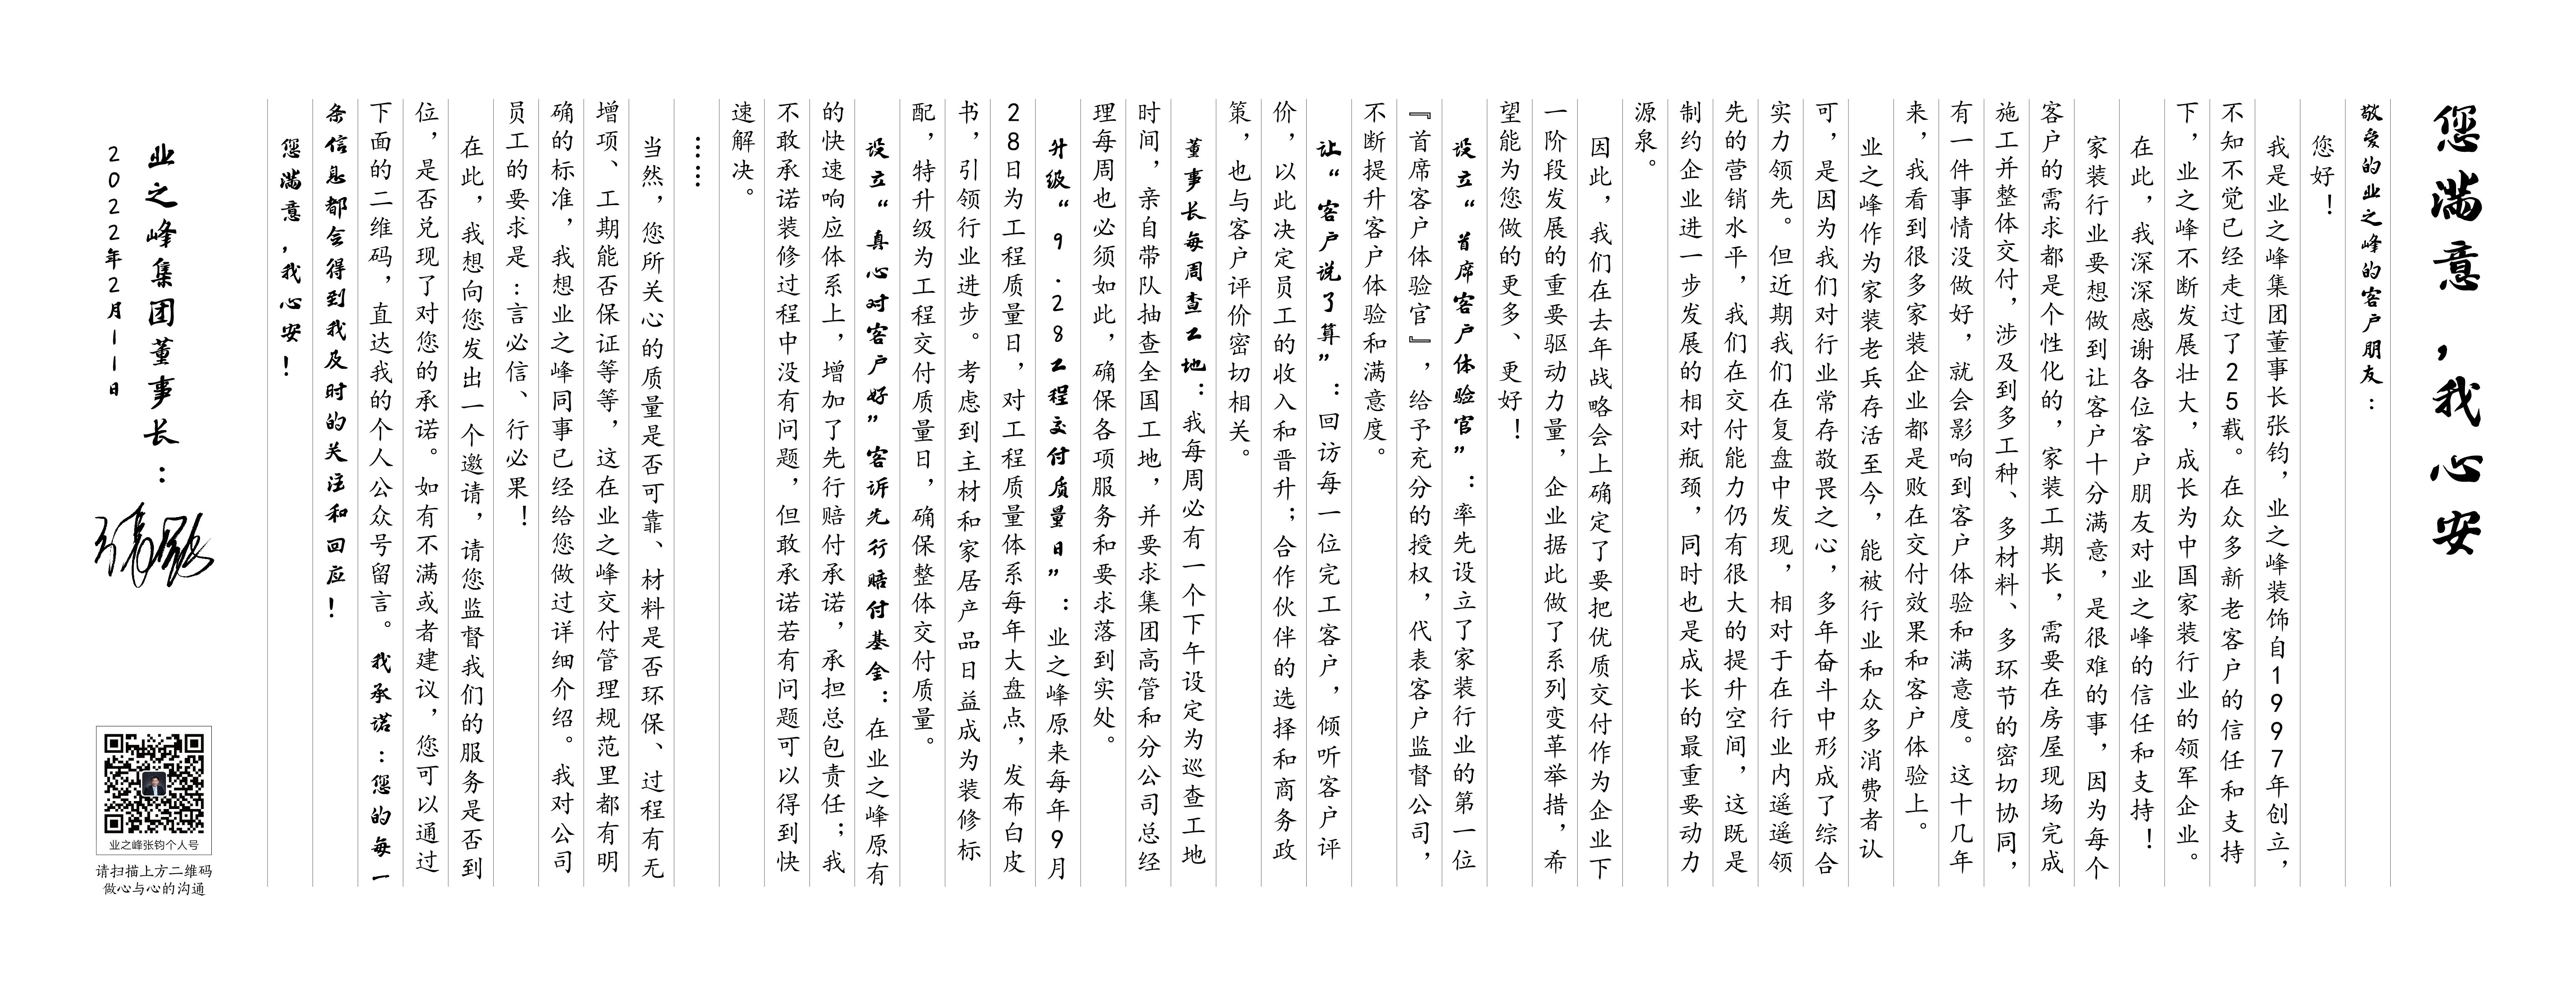 您满意，我心安
敬爱的业之峰的客户朋友：
您好！
我是业之峰集团董事长张钧，业之峰装饰自1997年创立，
不知不觉已经走过了25载。在众多新老客户的信任和支持
下，业之峰不断发展壮大，成长为中国家装行业的领军企业。
在此，我深深感谢各位客户朋友对业之峰的信任和支持！
家装行业要想做到让客户十分满意，是很难的事，因为每个
客户的需求都是个性化的，家装工期长，需要在房屋现场完成
施工并整体交付，涉及到多工种、多材料、多环节的密切协同，
有一件事情没做好，就会影响到客户体验和满意度。这十几年
来，我看到很多家装企业都是败在交付效果和客户体验上。
业之峰作为家装老兵存活至今，能被行业和众多消费者认
可，是因为我们对行业常存敬畏之心，多年奋斗中形成了综合
实力领先。但近期我们在复盘中发现，相对于在行业内遥遥领
先的营销水平，我们在交付能力仍有很大的提升空间，这既是
制约企业进一步发展的相对瓶颈，同时也是成长的最重要动力
源泉。
因此，我们在去年战略会上确定了要把优质交付作为企业下
一阶段发展的重要驱动力量，企业据此做了系列变革举措，希
望能为您做的更多、更好！
设立“首席客户体验官”：率先设立了家装行业的第一位
『首席客户体验官』，给予充分的授权，代表客户监督公司，
不断提升客户体验和满意度。
让“客户说了算”：回访每一位完工客户，倾听客户评
价，以此决定员工的收入和晋升；合作伙伴的选择和商务政
策，也与客户评价密切相关。
董事长每周查工地：我每周必有一个下午设定为巡查工地
时间，亲自带队抽查全国工地，并要求集团高管和分公司总经
理每周也必须如此，确保各项服务和要求落到实处。
升级“9.28工程交付质量日”：业之峰原来每年9月
28日为工程质量日，对工程质量体系每年大盘点，发布白皮
书，引领行业进步。考虑到主材和家居产品日益成为装修标
配，特升级为工程交付质量日，确保整体交付质量。
设立“真心对客户好”客诉先行赔付基金：在业之峰原有
的快速响应体系上，增加了先行赔付承诺，承担总包责任；我
不敢承诺装修过程中没有问题，但敢承诺若有问题可以得到快
速解决。
……
当然，您所关心的质量是否可靠、材料是否环保、过程有无
增项、工期能否保证等等，这在业之峰交付管理规范里都有明
确的标准，我想业之峰同事已经给您做过详细介绍。我对公司
员工的要求是：言必信、行必果！
在此，我想向您发出一个邀请，请您监督我们的服务是否到
位，是否兑现了对您的承诺。如有不满或者建议，您可以通过
下面的二维码，直达我的个人公众号留言。我承诺：您的每一
条信息都会得到我及时的关注和回应！
您满意，我心安！
业之峰集团董事长：
2022年2月11日
业之峰张钧个人号
请扫描上方二维码
做心与心的沟通